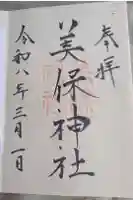 奉拝
美保神社
令和八年三月一日